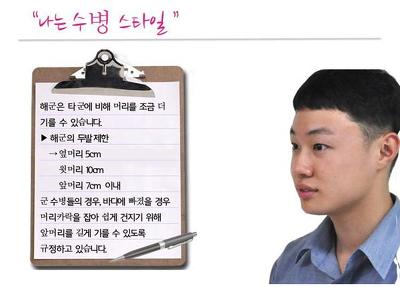 “나는 수병 스타일”
해군은 타 군에 비해 머리를 조금 더
기를 수 있습니다.
▶ 해군의 두발제한
→ 앞머리 5cm
윗머리 10cm
앞머리 7cm 이내
군 수병들의 경우, 바다에 빠졌을 경우
머리카락을 잡아 쉽게 건지기 위해
앞머리를 길게 기를 수 있도록
규정하고 있습니다.